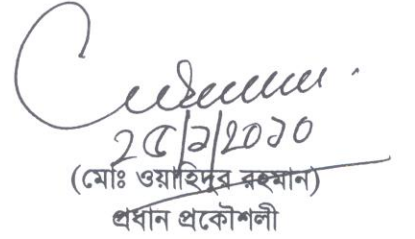 ২৫/১/২০১০
(মোঃ ওয়াহিদুর রহমান)
প্রধান প্রকৌশলী